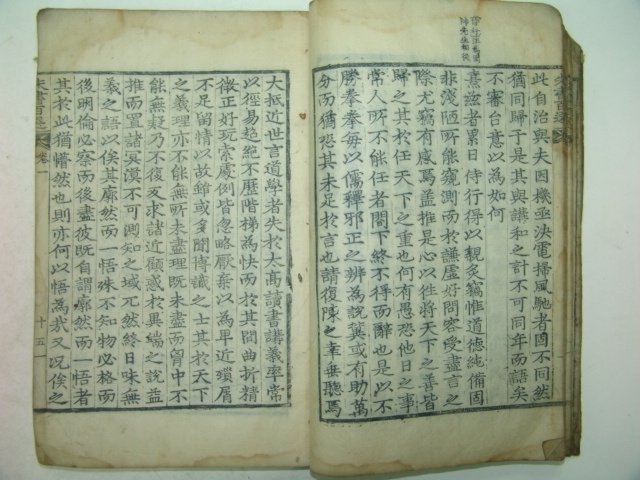 此自治與夫因機亟決電掃風馳者固不同然
猶同歸于是其與講和之計不可同年而語矣
不審台意以為如何
熹玆者累日侍行得以親炙竊惟道德純備固
非淺陋所能窺測而於謙虛好問容受盡言之
際尤竊有感焉蓋推是心以往將天下之善皆
歸之其於任天下之重也何有愚恐他日之事
常人所不能任者閤下終不得而辭也是以不
勝拳拳每以儒釋邪正之辨為說冀或有助萬
分而猶恐其未足於言也請復陳之幸垂聽焉
大抵近世言道學者失於太高讀書講義率常
以徑易超絶不歷階梯為快而於其間曲折精
微正好玩索處例皆忽略厭棄以為卑近瑣屑
不足留情以故雖或多聞博識之士其於天下
之義理亦不能無所未盡理既未盡而胷中不
能無疑乃不復反求諸近顧惑於異端之說益
推而置諸冥漠不可測知之域兀然終日味無
義之語以俟其廓然而一悟殊不知物必格而
後明倫必察而後盡彼既自謂廓然而一悟者
其於此猶懵然也則亦何以悟為哉又况俟之
朱書百選 卷一 十五